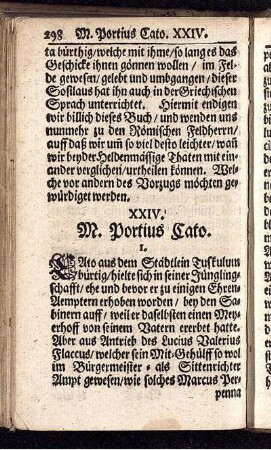 298 M. Portius Cato. XXIV.
ta bürthig/welche mit ihme/so lang es das
Geschicke ihnen gönnen wollen/ im Fel-
de gewesen/ gelebt und umbgangen/dieser
Sosilaus hat ihn auch in der Griechischen
Sprach unterrichtet. Hiermit endigen
wir billich dieses Buch/ und wenden uns
nunmehr zu den Römischen Feldherrn/
auff daß wir um̃ so viel desto leichter/ wañ
wir beyder Heldenmässige Thaten mit ein-
ander verglichen/urtheilen können. Wel-
che vor andern des Vorzugs möchten ge-
würdiget werden.
XXIV.
M. Portius Cato.
1.
CAto aus dem Städtlein Tuskulum
bürtig/hielte sich in seiner Jüngling-
schafft/ ehe und bevor er zu einigen Ehren
Aemptern erhoben worden/ bey den Sa-
binern auff/ weil er daselbsten einen Mey-
erhoff von seinem Vatern ererbet hatte.
Aber aus Antrieb des Lucius Valerius
Flaccus/welcher sein Mit-Gehülff so wol
im Bürgermeister- als Sittenrichter
Ampt gewesen/wie solches Marcus Per-
penna